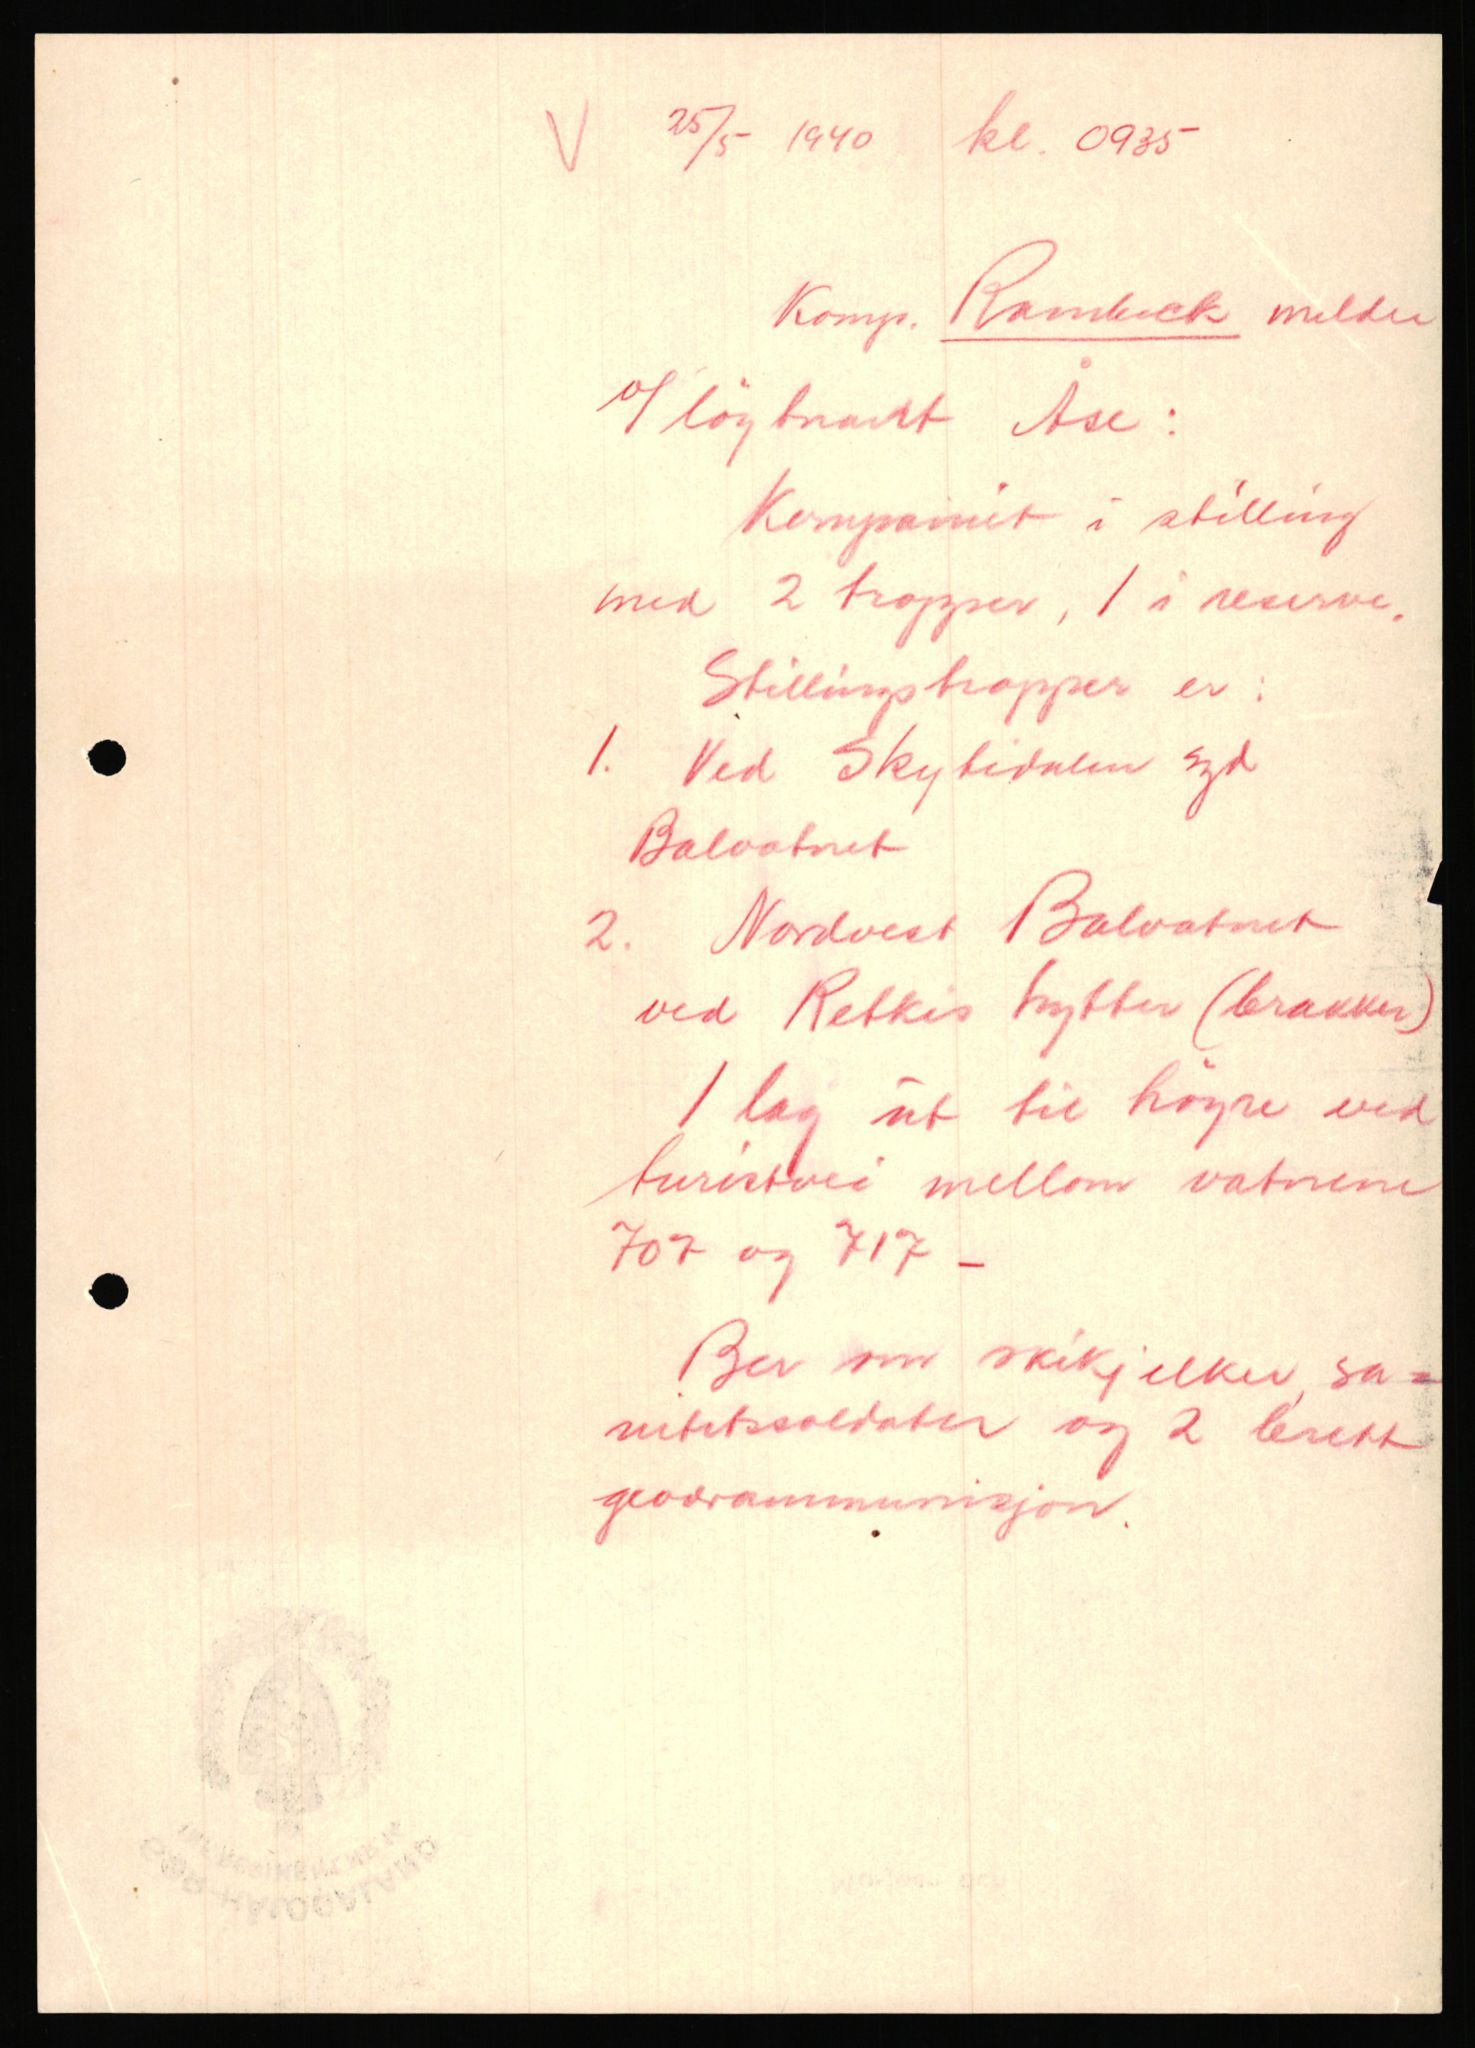 V 25/5 1940 kl. 0935
Komp. Rambeck melder
v/ löytnant Åse:
Kompaniet i stilling
med 2 tropper, 1 i reserve.
Stillingstropper er:
1. Ved Skytidalen syd
Balvatnet
2. Nordvest Balvatnet
ved Retkis hytter (brakker)
1 lag ut til högre ved
turistvei mellom vatnene
707 og 717 –
Ber om skikjelker, sa=
nitetssoldater og 2 brett
geværammunisjon.
SÖR-HÅLOGALAND
INF. REGIMENT NR. 14
Mosjøen den